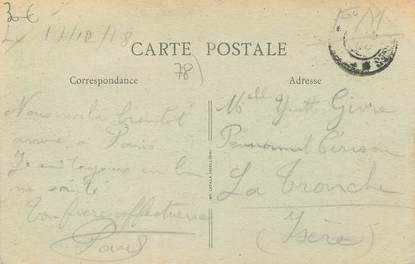 30€
Le 17/12/18
F M
CARTE POSTALE
78)
Correspondance
Adresse
Nous voilà bientôt
arrivé à Paris
Je suis toujours en bon
ne santé
Ton frère affectueux
Mell Givre
Pensionnat
La Tronche
(Isère)